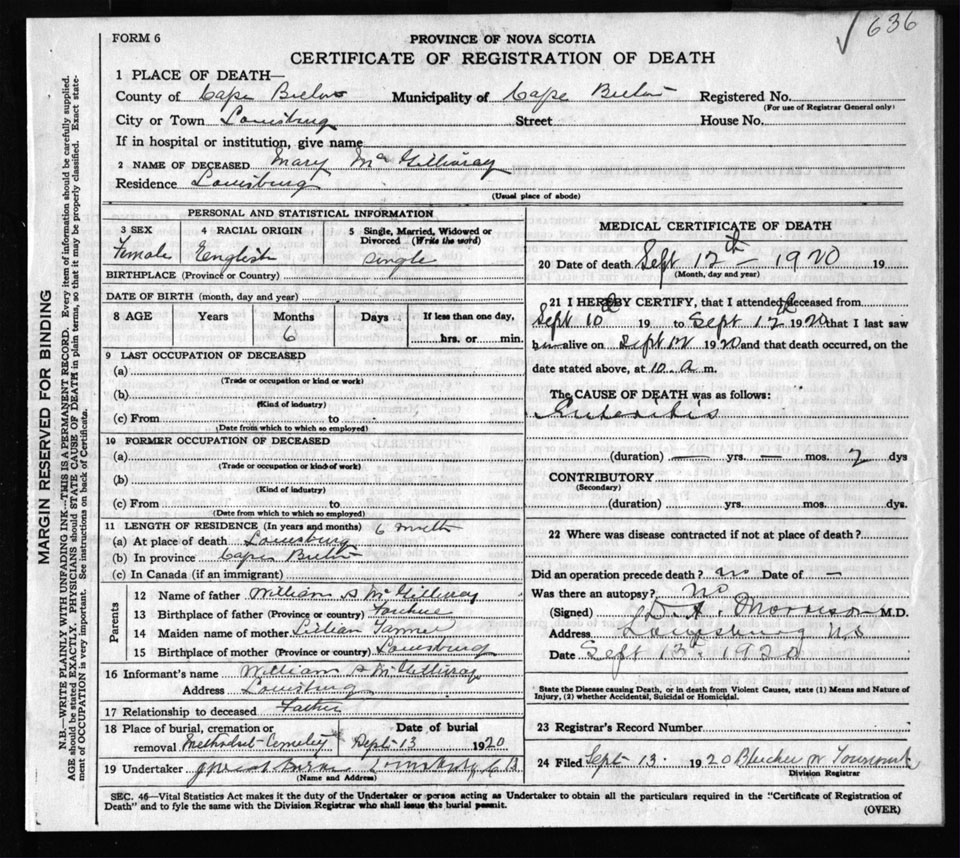 636
FORM 6
PROVINCE OF NOVA SCOTIA
CERTIFICATE OF REGISTRATION OF DEATH
1 PLACE OF DEATH—
County of Cape Breton Municipality of Cape Breton Registered No.
(For use of Registrar General only)
City or Town Louisburg Street House No.
If in hospital or institution, give name
2 NAME OF DECEASED Mary McGillivray
Residence Louisburg
(Usual place of abode)
PERSONAL AND STATISTICAL INFORMATION
3 SEX 4 RACIAL ORIGIN 5 Single, Married, Widowed or Divorced (Write the word)
Female English Single
BIRTHPLACE (Province or Country)
DATE OF BIRTH (month, day and year)
8 AGE Years Months Days If less than one day,
6 hrs. or min.
9 LAST OCCUPATION OF DECEASED
(a)
(Trade or occupation or kind or work)
(b)
(Kind of industry)
(c) From to
(Date from which to which so employed)
10 FORMER OCCUPATION OF DECEASED
(a)
(Trade or occupation or kind of work)
(b)
(Kind of industry)
(c) From to
(Date from which to which so employed)
11 LENGTH OF RESIDENCE (In years and months) 6 months
(a) At place of death Louisburg
(b) In province Cape Breton
(c) In Canada (if an immigrant)
Parents
12 Name of father William S McGillivray
13 Birthplace of father (Province or country)
14 Maiden name of mother Lillian
15 Birthplace of mother (Province or country) Louisburg
16 Informant's name William S McGillivray
Address Louisburg
17 Relationship to deceased Father
18 Place of burial, cremation or removal Methodist Cemetery Date of burial Sept 13 1920
19 Undertaker Louisburg C B
(Name and Address)
MEDICAL CERTIFICATE OF DEATH
20 Date of death Sept 12th — 1920 19
(Month, day and year)
21 I HEREBY CERTIFY, that I attended deceased from
Sept 10th 19 to Sept 12th 1920 that I last saw
her alive on Sept 12 1920 and that death occurred, on the
date stated above, at 10 a m.
The CAUSE OF DEATH was as follows:
Enteritis
(duration) — yrs. — mos. 2 dys
CONTRIBUTORY
(Secondary)
(duration) yrs. mos. dys.
22 Where was disease contracted if not at place of death?
Did an operation precede death? no Date of —
Was there an autopsy? No
(Signed) Morrison M.D.
Address Louisburg NS
Date Sept 13th 1920
* State the Disease causing Death, or in death from Violent Causes, state (1) Means and Nature of Injury, (2) whether Accidental, Suicidal or Homicidal.
23 Registrar's Record Number
24 Filed Sept 13. 1920
Division Registrar
SEC. 46—Vital Statistics Act makes it the duty of the Undertaker or person acting as Undertaker to obtain all the particulars required in the "Certificate of Registration of
Death" and to fyle the same with the Division Registrar who shall issue the burial permit.
(OVER)
MARGIN RESERVED FOR BINDING
N.B.—WRITE PLAINLY WITH UNFADING INK—THIS IS A PERMANENT RECORD. Every item of information should be carefully supplied.
AGE should be stated EXACTLY. PHYSICIANS should STATE CAUSE OF DEATH in plain terms, so that it may be properly classified. Exact state-
ment of OCCUPATION is very important. See instructions on back of Certificate.